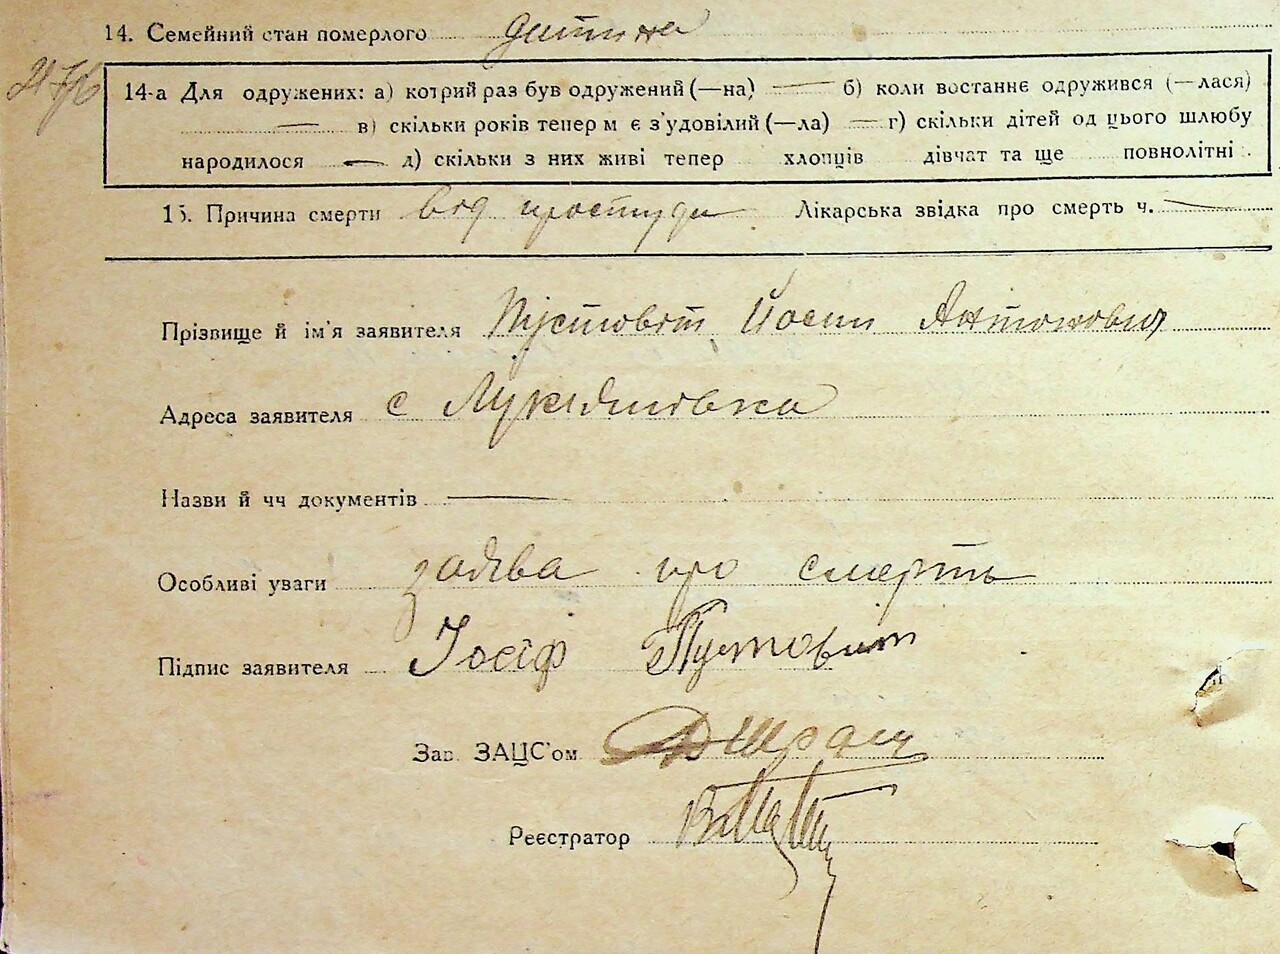 14. Семейний стан померлого дитина
14-а Для одружених: а) котрий раз був одружений (—на) — б) коли востаннє одружився (—лася)
— в) скільки років тепер м є з'удовілий (—ла) — г) скільки дітей од цього шлюбу
народилося — д) скільки з них живі тепер хлопців дівчат та ще повнолітні .
15. Причина смерти від простуди Лікарська звідка про смерть ч. —
Прізвище й ім'я заявителя Пустовіт Йосип Антонович
Адреса заявителя с Лукашовка
Назви й чч документів —
Особливі уваги заява про смерть
Підпис заявителя Іосіф Пустовит
Зав. ЗАЦС'ом
Реєстратор